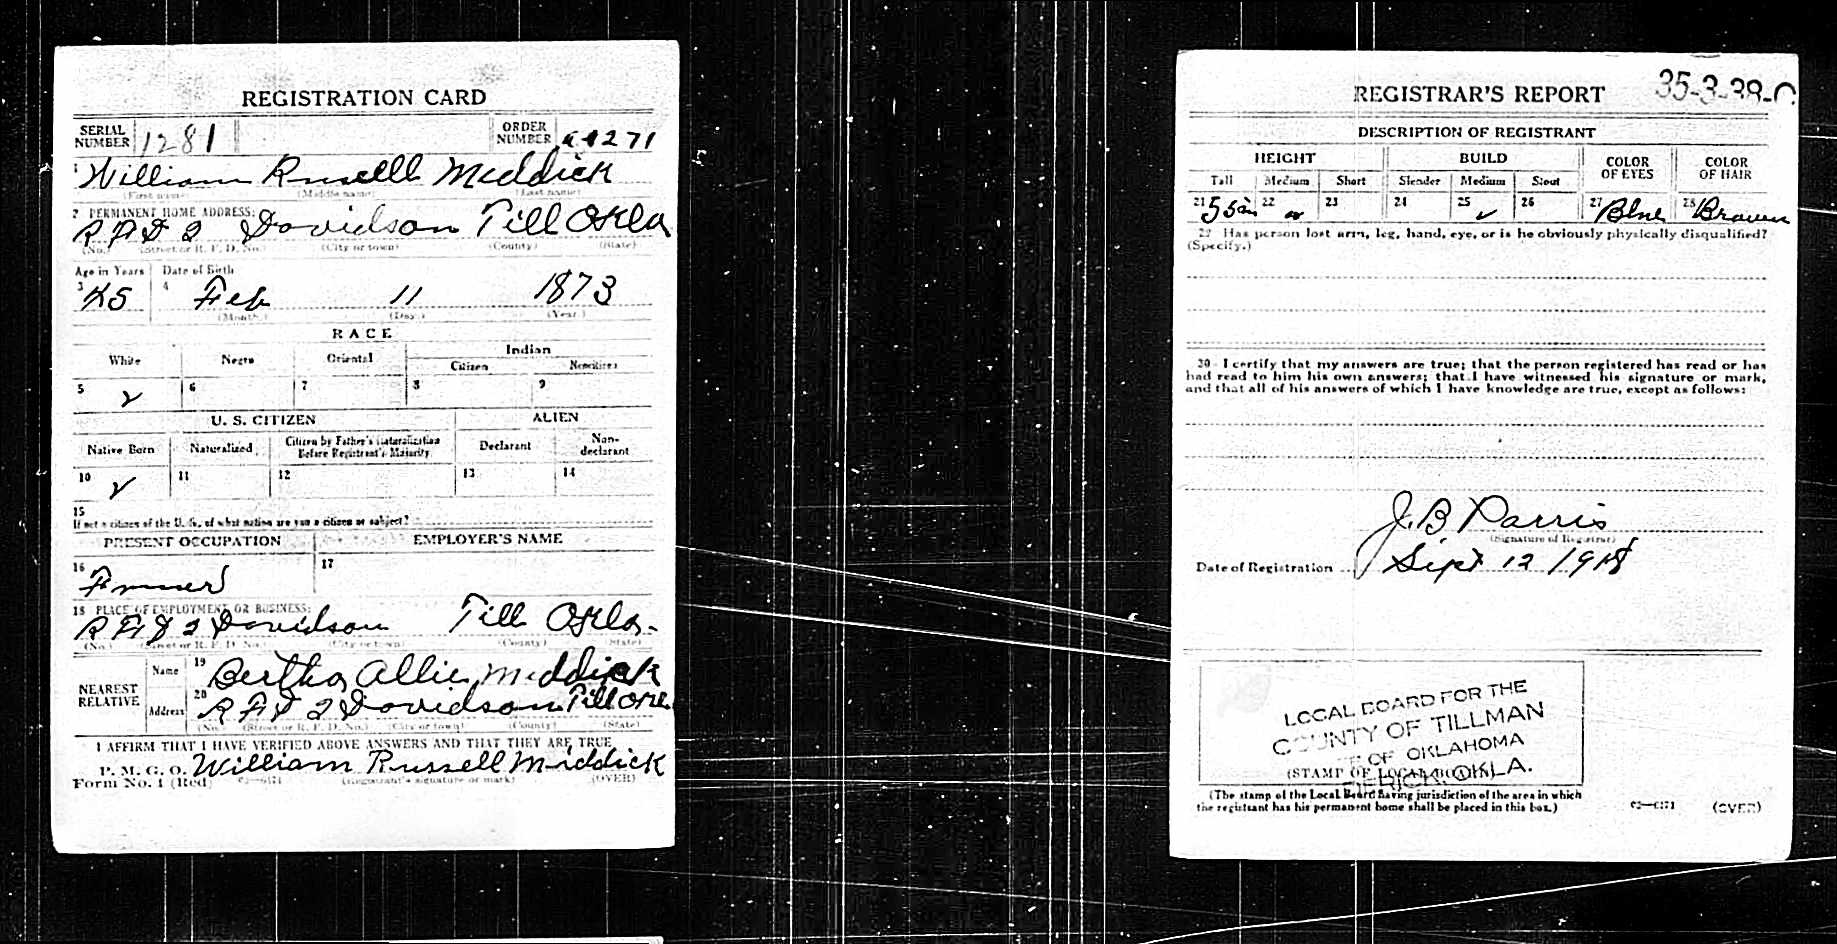 REGISTRATION CARD
SERIAL NUMBER 1281 ORDER NUMBER 271
1 William Russell Meddick
(First name) (Middle name) (Last name)
2 PERMANENT HOME ADDRESS:
R F D 2 Davidson Till Okla
(No.) (Street or R. F. D. No.) (City or town) (County) (State)
Age in Years Date of Birth
3 45 4 Feb 11 1873
(Month.) (Day.) (Year.)
RACE
White Negro Oriental Indian
Citizen Noncitizen
5 v 6 7 8 9
U. S. CITIZEN ALIEN
Native Born Naturalized Citizen by Father's Naturalization Before Registrant's Majority Declarant Non-declarant
10 v 11 12 13 14
15
If not a citizen of the U. S., of what nation are you a citizen or subject?
PRESENT OCCUPATION EMPLOYER'S NAME
16 Farmer 17
18 PLACE OF EMPLOYMENT OR BUSINESS:
R F D 2 Davidson Till Okla.
(No.) (Street or R. F. D. No.) (City or town) (County) (State)
NEAREST RELATIVE Name 19 Bertha Allie Meddick
Address 20 R F D 2 Davidson Till Okl
(No.) (Street or R. F. D. No.) (City or town) (County) (State)
I AFFIRM THAT I HAVE VERIFIED ABOVE ANSWERS AND THAT THEY ARE TRUE
P. M. G. O. William Russell Middick
Form No. 1 (Red) (Registrant's signature or mark) (OVER)
35-3-38-C
REGISTRAR'S REPORT
DESCRIPTION OF REGISTRANT
HEIGHT BUILD COLOR OF EYES COLOR OF HAIR
Tall Medium Short Slender Medium Stout
21 22 23 24 25 v 26 27 Blue 28 Brown
29 Has person lost arm, leg, hand, eye, or is he obviously physically disqualified?
(Specify.)
30 I certify that my answers are true; that the person registered has read or has
had read to him his own answers; that I have witnessed his signature or mark,
and that all of his answers of which I have knowledge are true, except as follows:
J. B Parris
(Signature of Registrar)
Date of Registration Sept 12 1918
LOCAL BOARD FOR THE
COUNTY OF TILLMAN
OF OKLAHOMA
(STAMP OF LOCAL BOARD)
OKLA.
(The stamp of the Local Board having jurisdiction of the area in which
the registrant has his permanent home shall be placed in this box.)
(OVER)